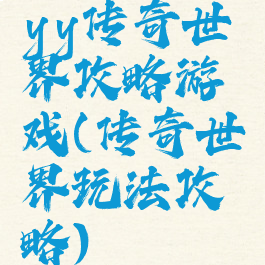 yy传奇世
界攻略游
戏(传奇世
界玩法攻
略)